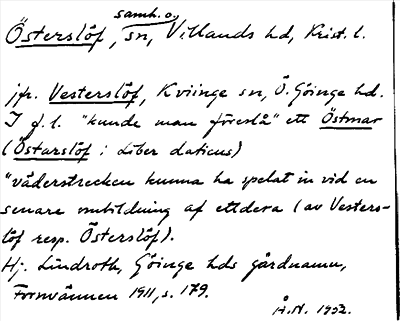 samh. o.
Österslöf, sn, Villands hd, Krist. l.
jfr. Vesterslöf, Kviinge sn, Ö. Göinge hd.
I f. l. "kunde man föreslå" ett Östmar
(Östarslöf i Liber daticus)
"väderstrecken kunna ha spelat in vid en
senare ombildning af ettdera (av Vesters-
löf resp. Österslöf).
Hj. Lindroth, Göinge hds gårdnamn,
Fornvännen 1911, s. 179.
Å.N. 1952.